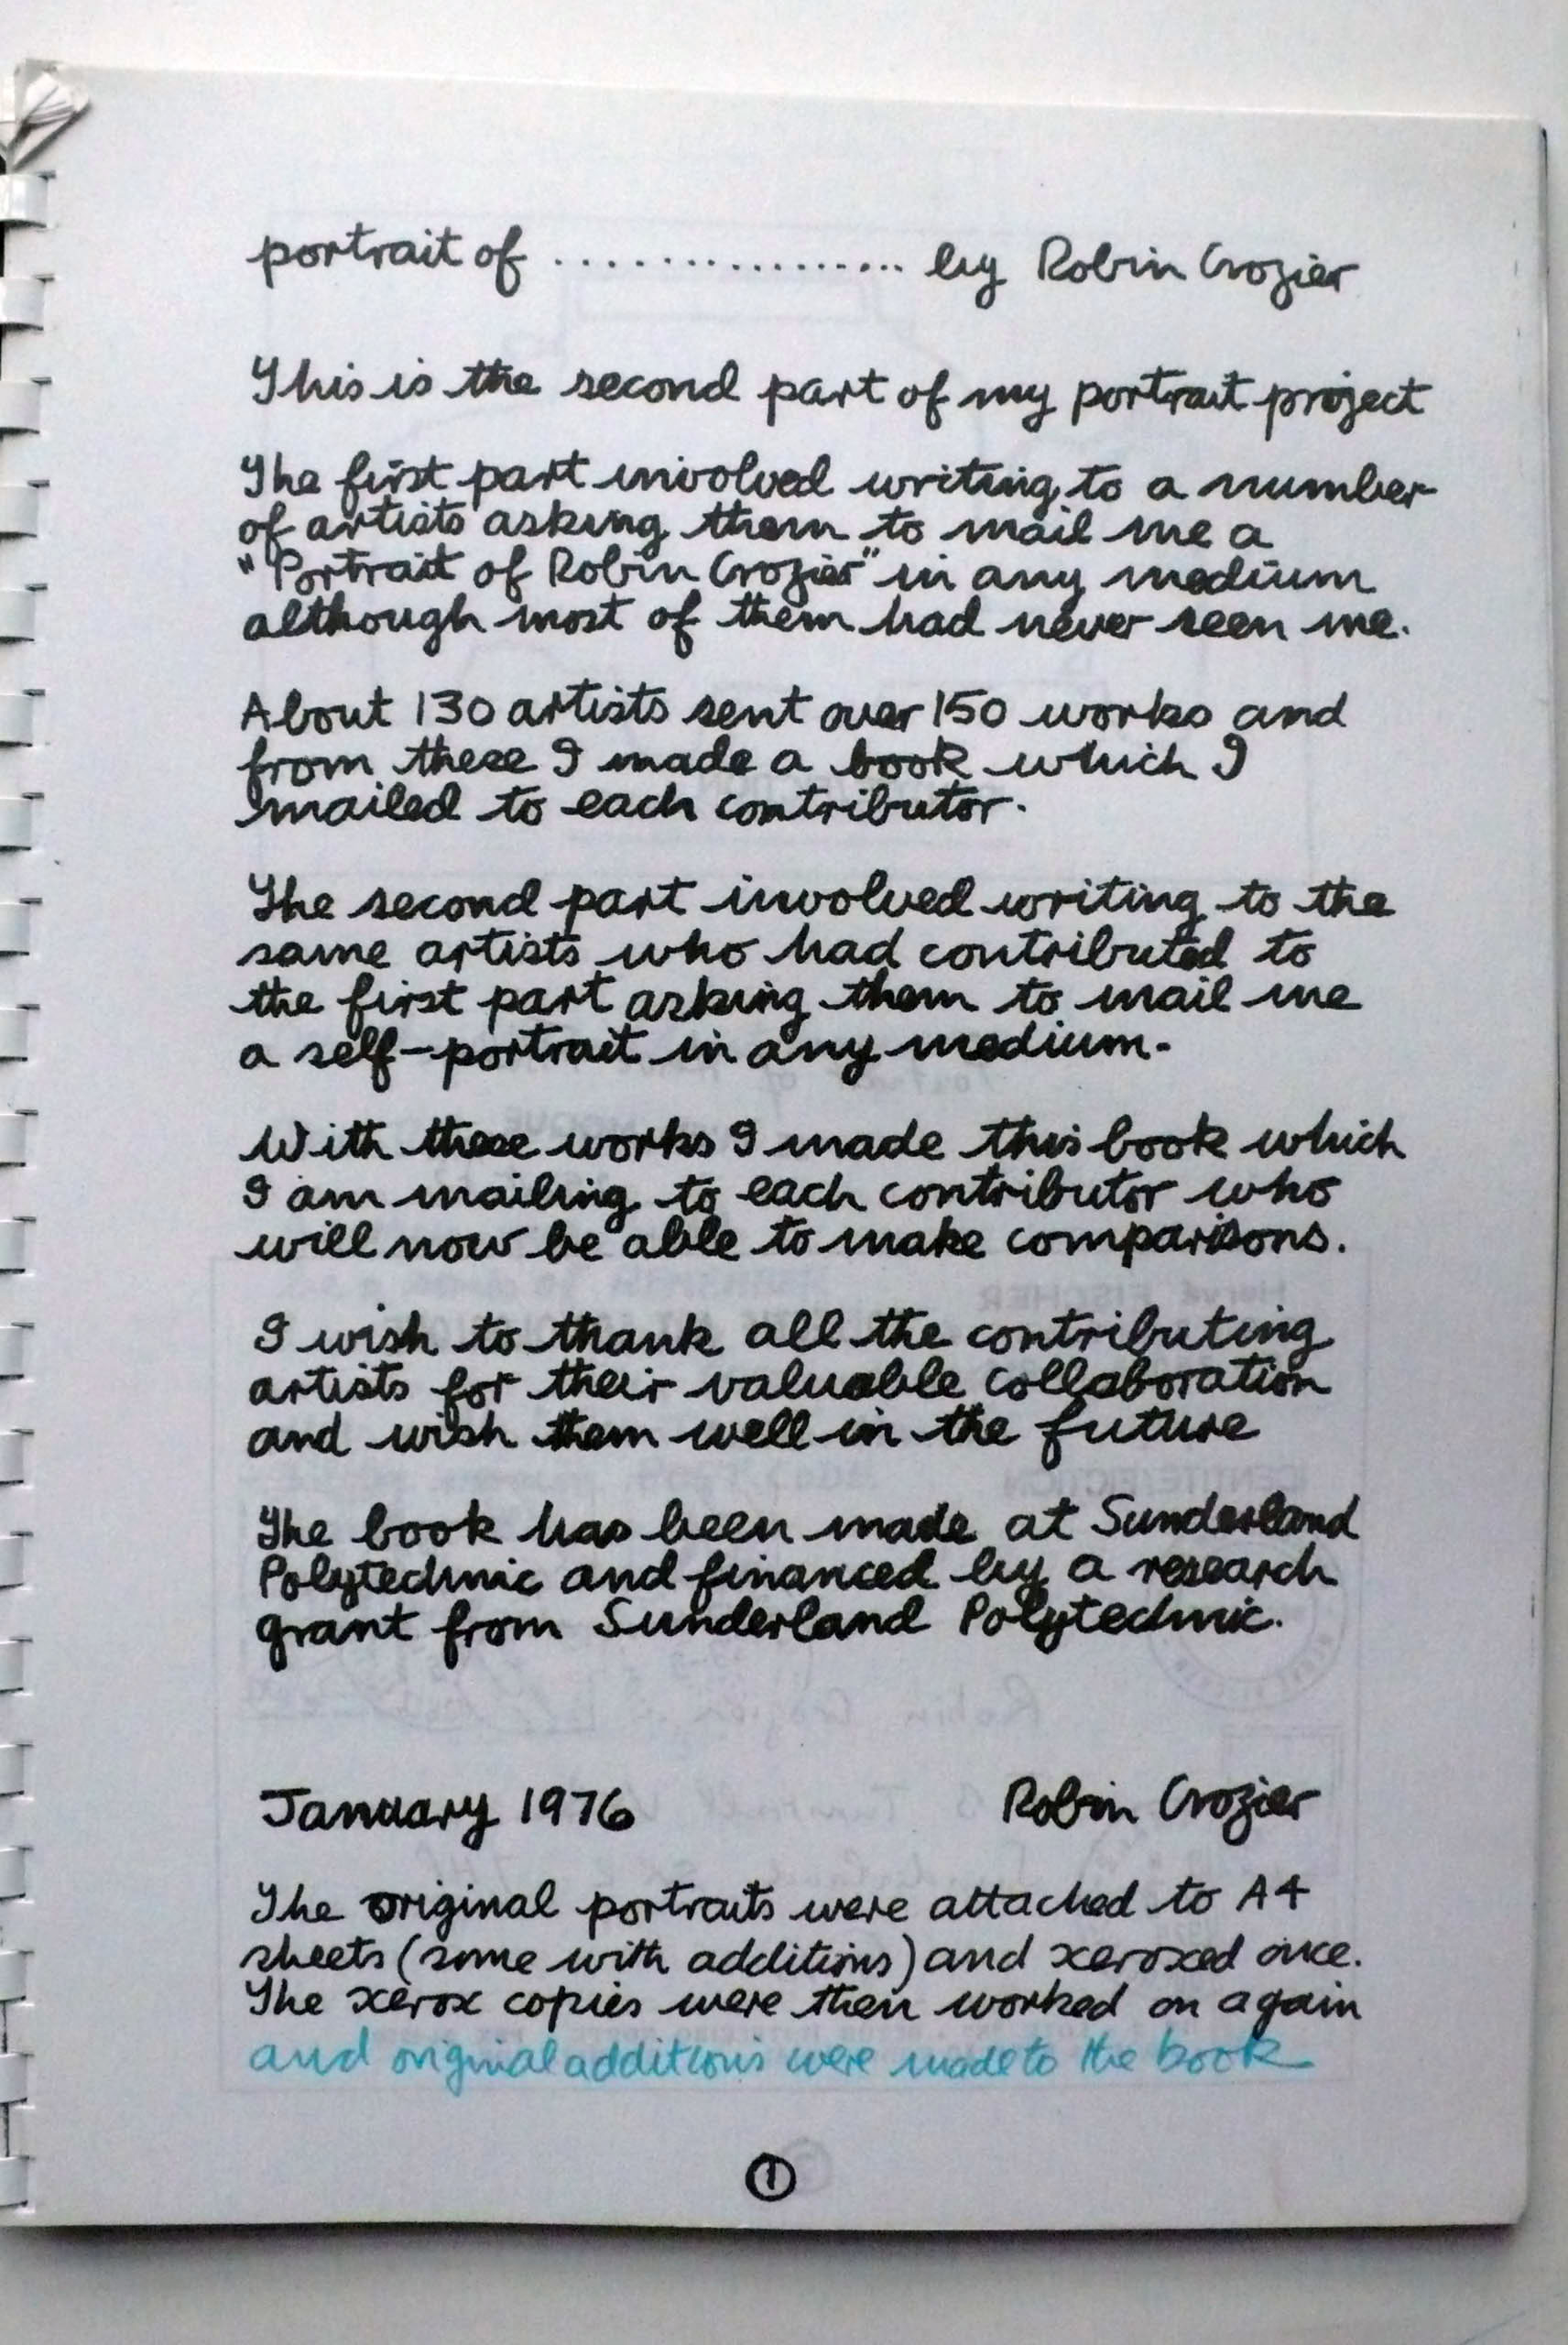 portrait of .................. by Robin Crozier
This is the second part of my portrait project
The first part involved writing to a number
of artists asking them to mail me a
"Portrait of Robin Crozier" in any medium
although most of them had never seen me.
About 130 artists sent over 150 works and
from these I made a book which I
mailed to each contributor.
The second part involved writing to the
same artists who had contributed to
the first part asking them to mail me
a self-portrait in any medium.
With these works I made this book which
I am mailing to each contributor who
will now be able to make comparisons.
I wish to thank all the contributing
artists for their valuable collaboration
and wish them well in the future
The book has been made at Sunderland
Polytechnic and financed by a research
grant from Sunderland Polytechnic.
January 1976 Robin Crozier
The original portraits were attached to A4
sheets (some with additions) and xeroxed once.
The xerox copies were then worked on again
and original additions were made to the book
1